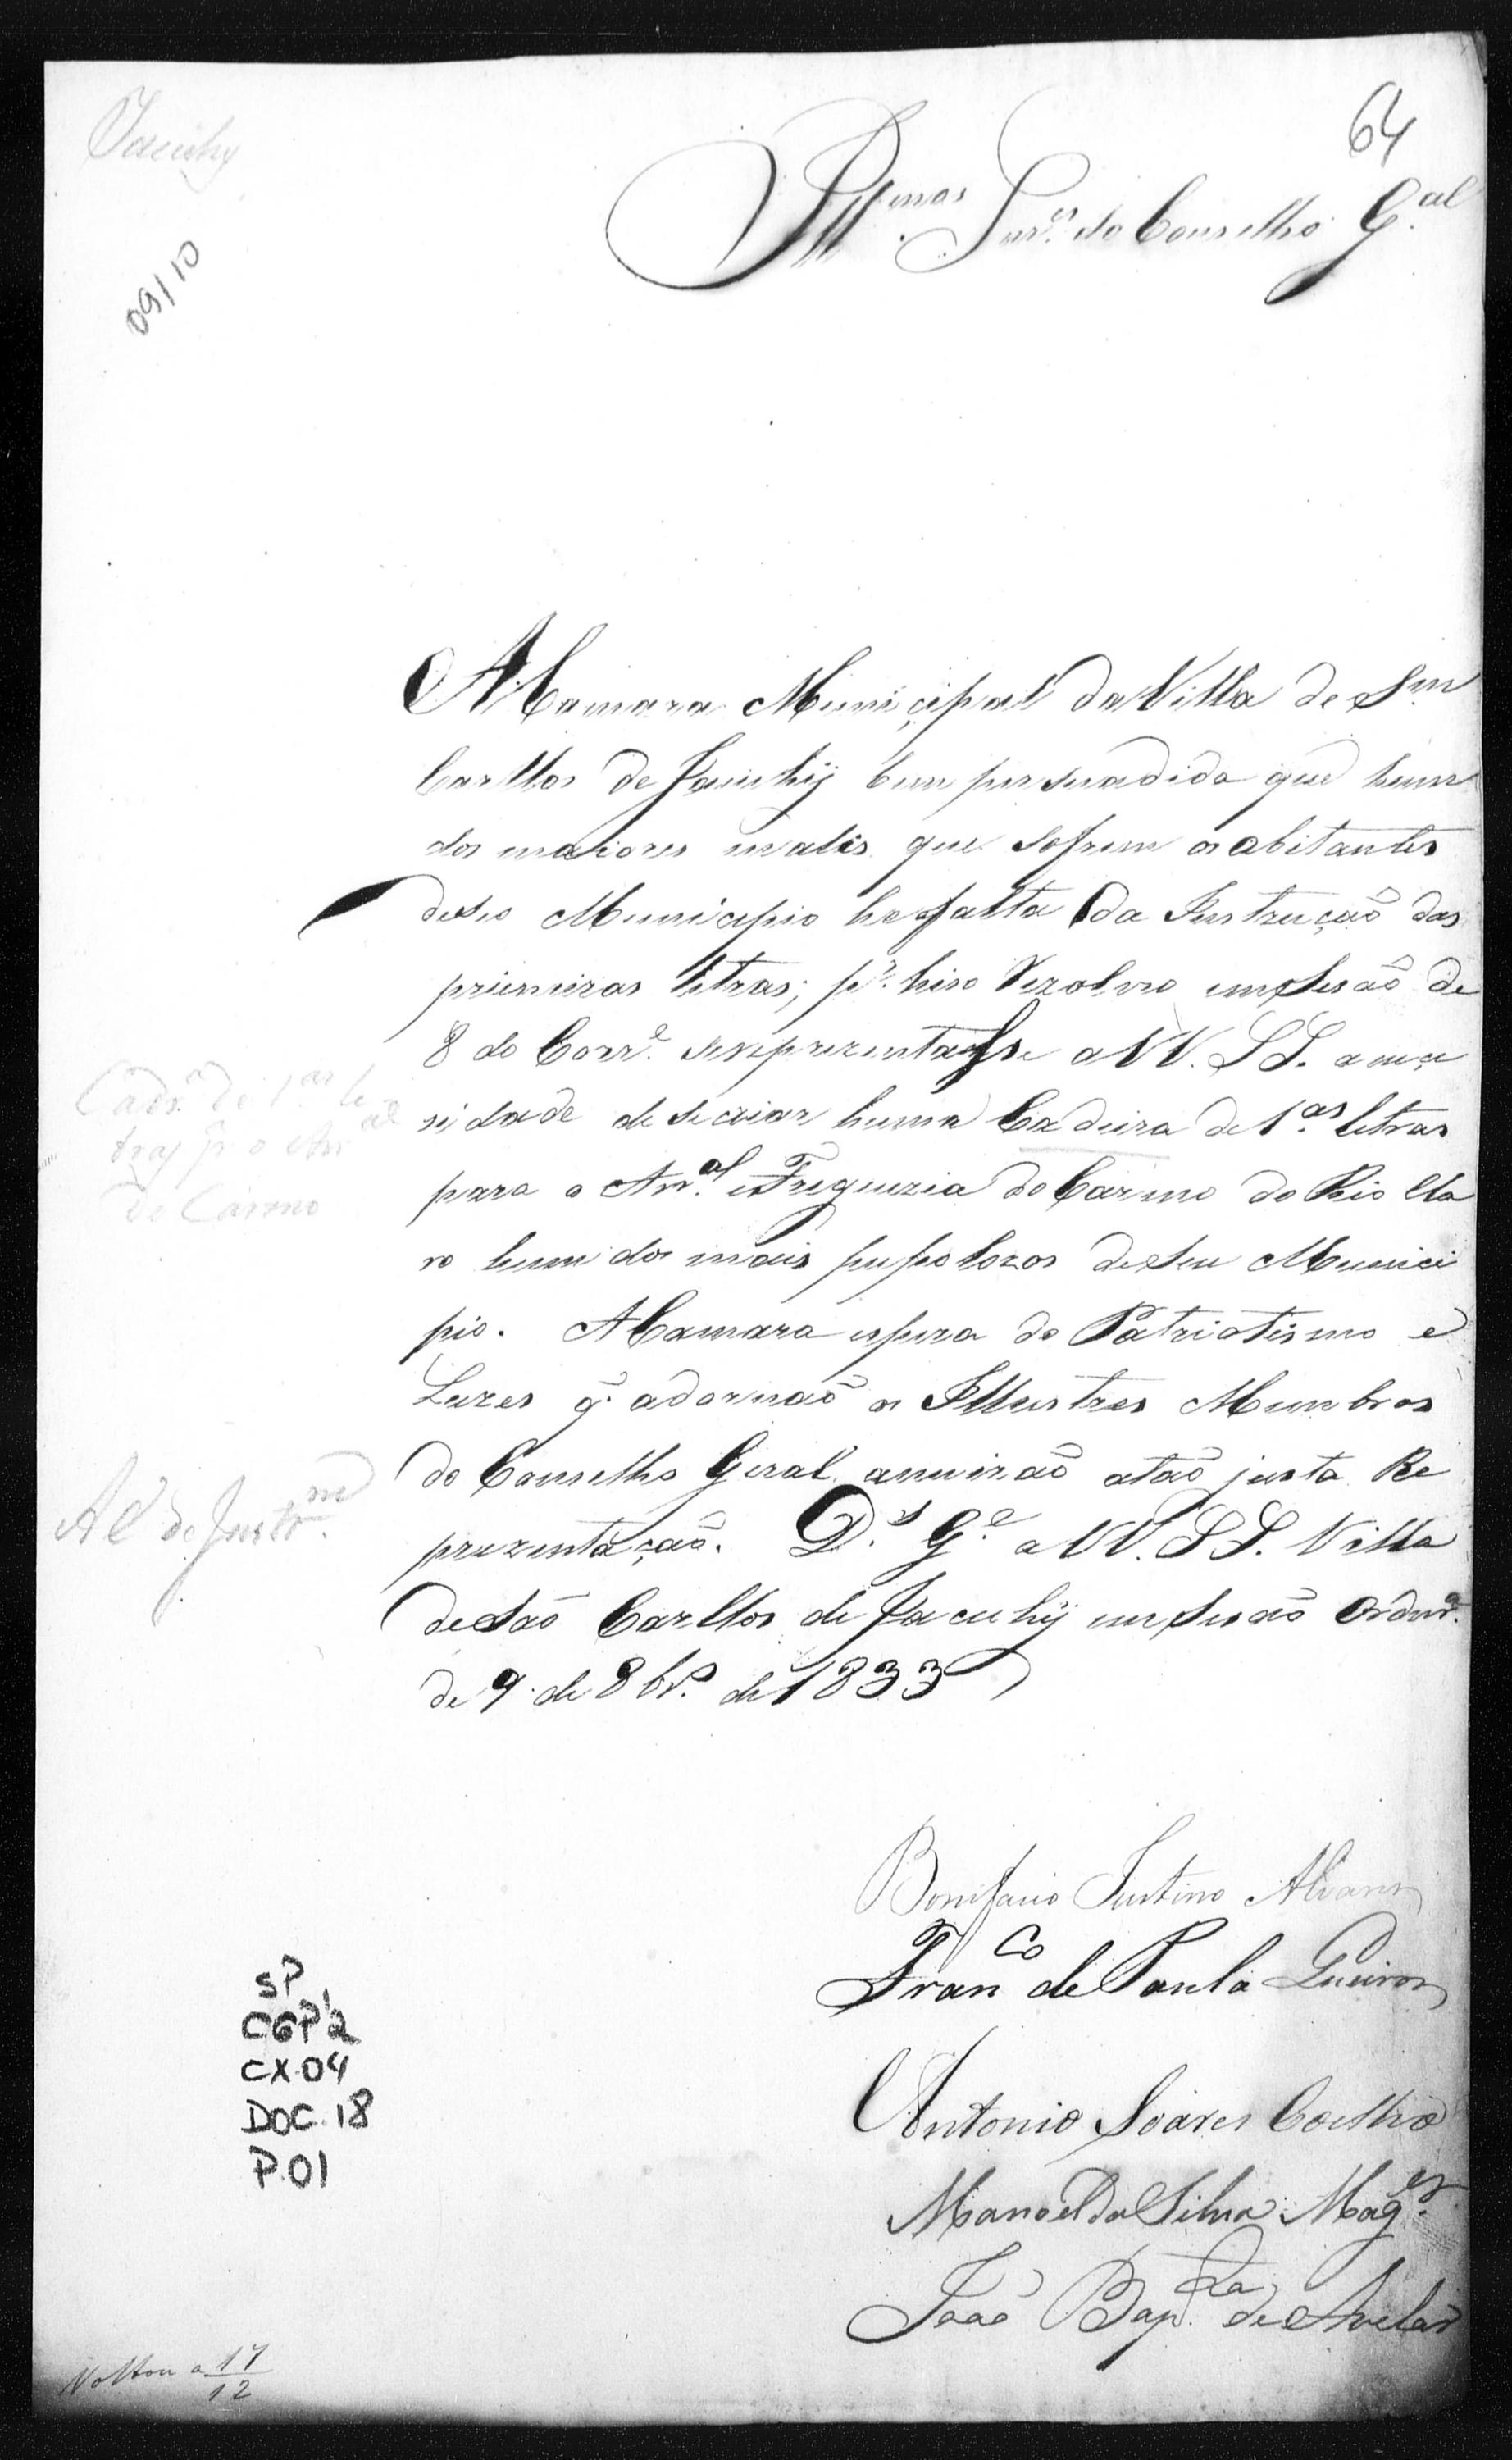 Jacuhy
64
09/10
Ill.mos Snr.es do Conselho G.al
A Camara Municipal da Villa de Sm
Carllos de Jacuhÿ bem persuadida que hum
dos maiores males que sofrem os abitantes
deseo Municipio he falta da Instrução das
primeiras letras; p.r hiso Rezolveo em Sesão de
8 do Corr.e reprezentasse a VV. SS. a neçe
sidade de se criar huma Cadeira de 1.as letras
para o Arr.al e Freguezia do Carmo do Rio Cla
ro hum dos mais pupolozos de seu Munici
pio. A Camara espera do Patriotismo e
Luzes q. adornaõ os Illustres Membros
do Conselho Geral anuiraõ a taõ justa Re
prezentação. D.s G.e a VV. SS. Villa
de São Carllos de Jacuhÿ em Sesão Ordnr.a
de 9 de 8br.o de 1833
Cadr.a de 1.as le
tras p.a o Arr.al
do Carmo
A C de Instr.m
Bonifacio Justino Alvares
Fran.co de Paula Queiros
Antonio Soares Coelho
Manoel da Silva Mag.es
João Bap.ta de Avelar
SP
CGP'2
CX.04
DOC.18
P.01
Voltou a 17/12